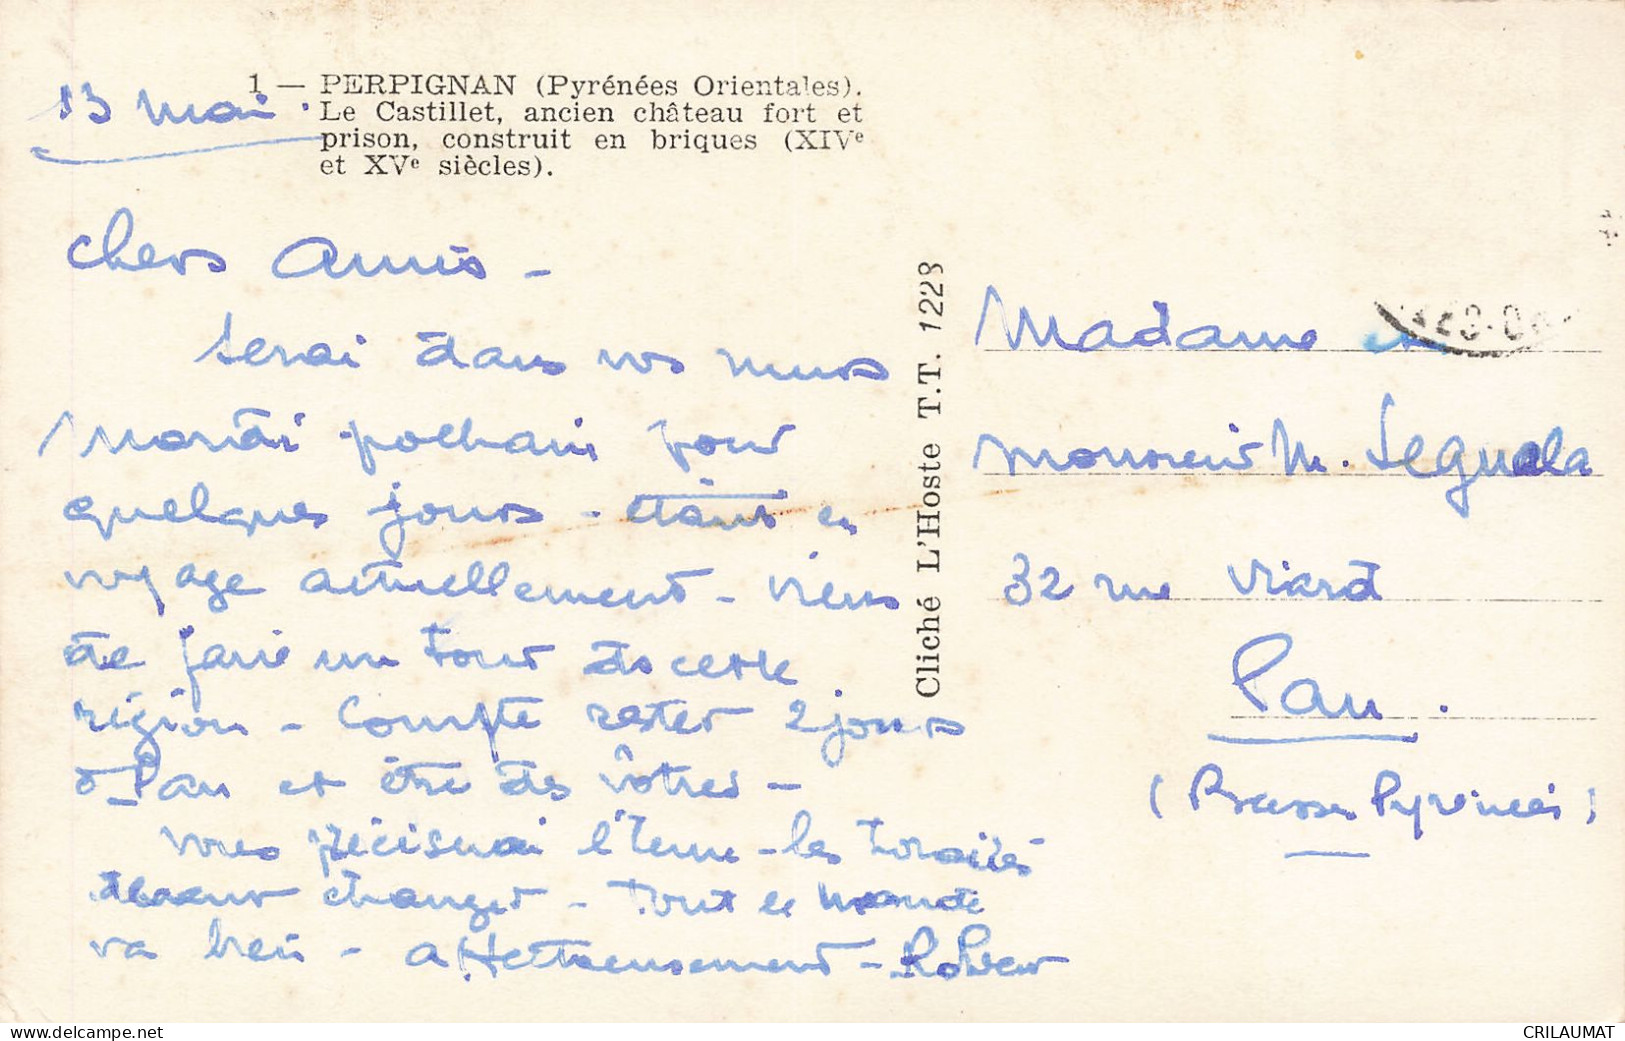 1 — PERPIGNAN (Pyrénées Orientales).
Le Castillet, ancien château fort et
prison, construit en briques (XIVe
et XVe siècles).
13 mai.
Chers Amis -
Serai dans vos murs
Mardi prochain pour
quelques jours - étant en
voyage actuellement - viens
de faire un tour ds cette
région - Compte rester 2 jours
à Pau et être des vôtres -
vous préciserai l'heure - les horaires
devant changer - Tout le monde
va bien - affectueusement - Robert
Cliché L'Hoste T.T. 1228
Madame et
Monsieur M. Seguala
32 rue Viard
Pau.
(Basses Pyrénées)
CRILAUMAT